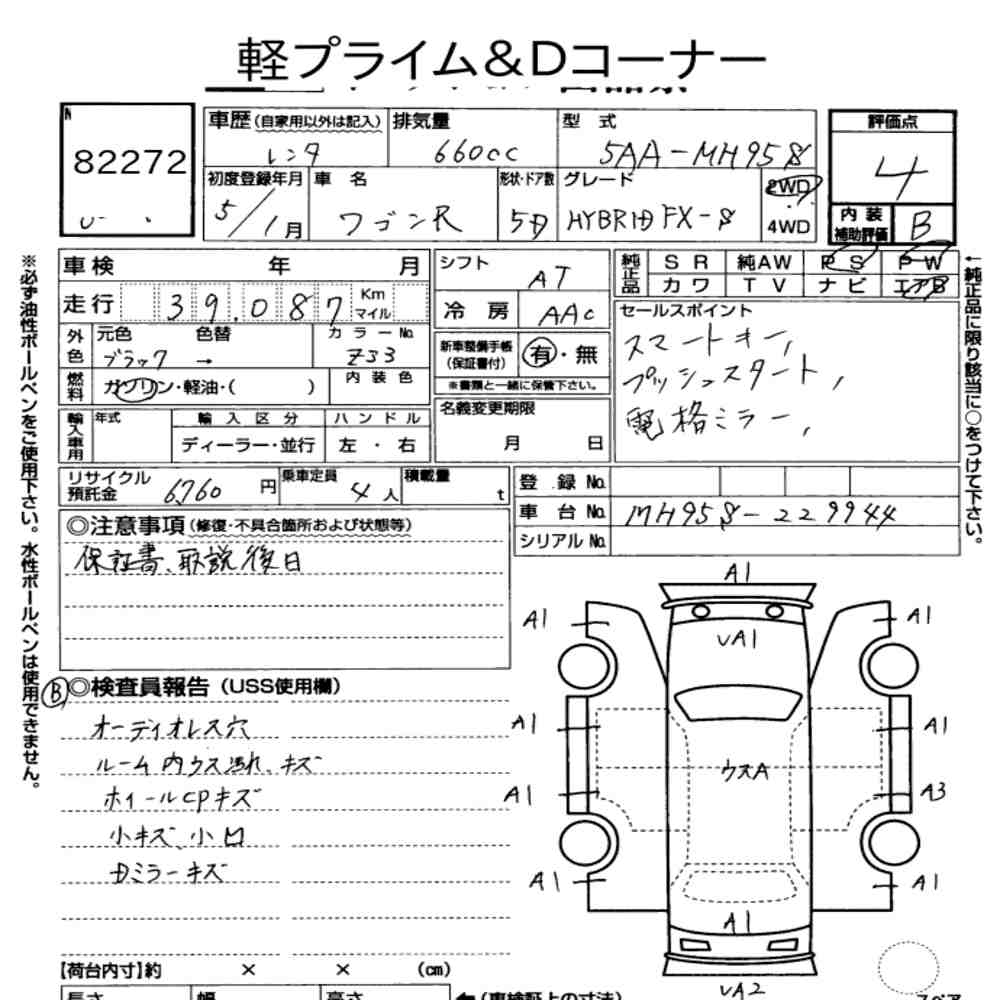 軽プライム&Dコーナー
N
82272
車歴 (自家用以外は記入) 排気量 型式 評価点
レンタ 660cc 5AA-MH95S 4
初度登録年月 車名 形状・ドア数 グレード 2WD
5/1月 ワゴンR 5D HYBRID FX-S 4WD
内装補助評価 B
車検 年 月 シフト AT 純正品 SR 純AW PS PW
カワ TV ナビ エアB
走行 39,087 Km マイル 冷房 AAC
セールスポイント
スマートキー,
プッシュスタート,
電格ミラー,
外色 元色 色替 カラーNo.
ブラック → Z53
新車整備手帳 (保証書付) 有・無
※書類と一緒に保管下さい。
燃料 ガソリン・軽油・( ) 内装色
名義変更期限
月 日
輸入車用 年式 輸入区分 ハンドル
ディーラー・並行 左・右
リサイクル預託金 6,760円 乗車定員 4人 積載量 t
登録No.
車台No. MH95S-229944
シリアルNo.
◎注意事項 (修復・不具合箇所および状態等)
保証書、取説後日
※必ず油性ボールペンをご使用下さい。水性ボールペンは使用できません。
←純正品に限り該当に○をつけて下さい。
B ◎検査員報告 (USS使用欄)
オーディオレス穴
ルーム内ウス汚れ、キズ
ホイールCPキズ
小キズ、小凹
Dミラーキズ
A1
A1 A1
UA1
A1 A1
ウスA
A1 A3
A1 A1
A1
UA2
【荷台内寸】約 × × (cm)
長さ 幅 高さ ←(車検証上の寸法)
スペア